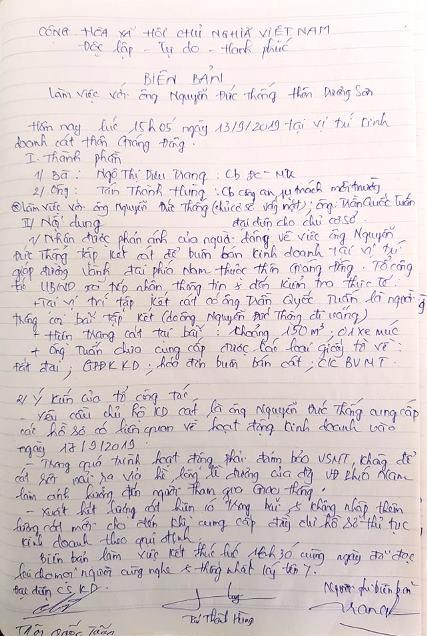 CỘNG HÒA XÃ HỘI CHỦ NGHĨA VIỆT NAM
Độc lập - Tự do - Hạnh phúc
BIÊN BẢN
Làm việc với ông Nguyễn Đức Thắng thôn Dương Sơn
Hôm nay lúc 15h05 ngày 13/9/2019 tại vị trí kinh
doanh cát thôn Giang Đông.
I. Thành phần
1/ Bà: Ngô Thị Diệu Trang: Cb ĐC-MTr
2/ Ông: Thành Hùng: Cb công an, phụ trách môi trường
Làm việc với ông Nguyễn Đức Thắng (chủ cơ sở vắng mặt); ông Trần Quốc Tuấn
đại diện cho chủ cơ sở.
II/ Nội dung
1/ Nhận được phản ánh của người dân về việc ông Nguyễn
Đức Thắng tập kết cát để buôn bán kinh doanh tại vị trí
giáp đường vành đai phía Nam thuộc thôn Giang Đông. Tổ công
tác UBND xã tiếp nhận thông tin & đến kiểm tra thực tế.
- Tại vị trí tập kết cát có ông Trần Quốc Tuấn là người
trông coi bãi tập kết (do ông Nguyễn Đức Thắng đi vắng)
- Hiện trạng cát tại bãi: Khoảng 150m³, 01 xe múc
+ Ông Tuấn chưa cung cấp được các loại giấy tờ về:
đất đai; GPĐKKD; hóa đơn buôn bán cát; C/C BVMT.
2/ Ý kiến của tổ công tác
- Yêu cầu chủ hộ KD cát là ông Nguyễn Đức Thắng cung cấp
các hồ sơ có liên quan về hoạt động kinh doanh vào
ngày 17/9/2019.
- Trong quá trình hoạt động phải đảm bảo VSMT, không để
cát rơi vãi ra vỉa hè lòng lề đường của đg VĐ phía Nam
làm ảnh hưởng đến người tham gia giao thông.
- Xuất hết lượng cát hiện có trong bãi & không nhập thêm
lượng cát mới cho đến khi cung cấp đầy đủ hồ sơ thủ tục
kinh doanh theo qui định.
Biên bản làm việc kết thúc lúc 16h30 cùng ngày đã đọc
lại cho mọi người cùng nghe & thống nhất ký tên.
Đại diện CSKD
Người ghi biên bản
Thành Hùng
Trần Quốc Tuấn